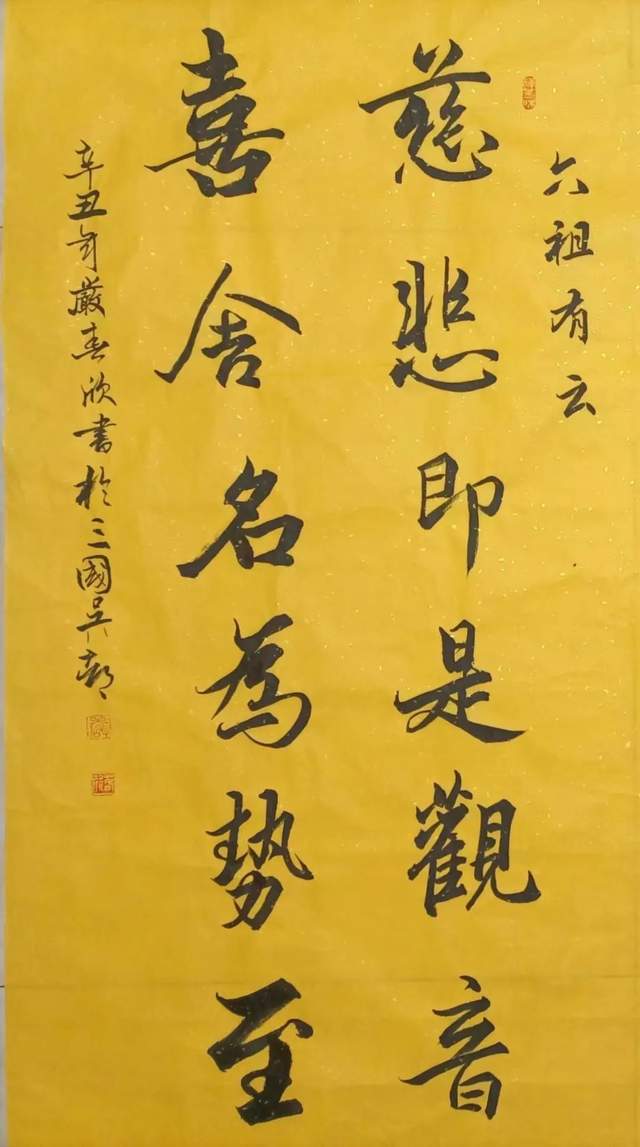 六祖有云
慈悲即是觀音
喜舍名為勢至
辛丑年嚴春欣書於三國吳都